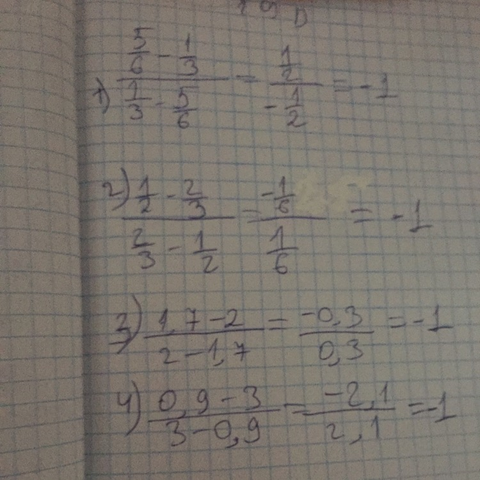 1) (5/6 - 1/3)/(1/3 - 5/6) = (1/2)/(-1/2) = -1
2) (1/2 - 2/3)/(2/3 - 1/2) = (-1/6)/(1/6) = -1
3) (1,7-2)/(2-1,7) = (-0,3)/(0,3) = -1
4) (0,9-3)/(3-0,9) = (-2,1)/(2,1) = -1